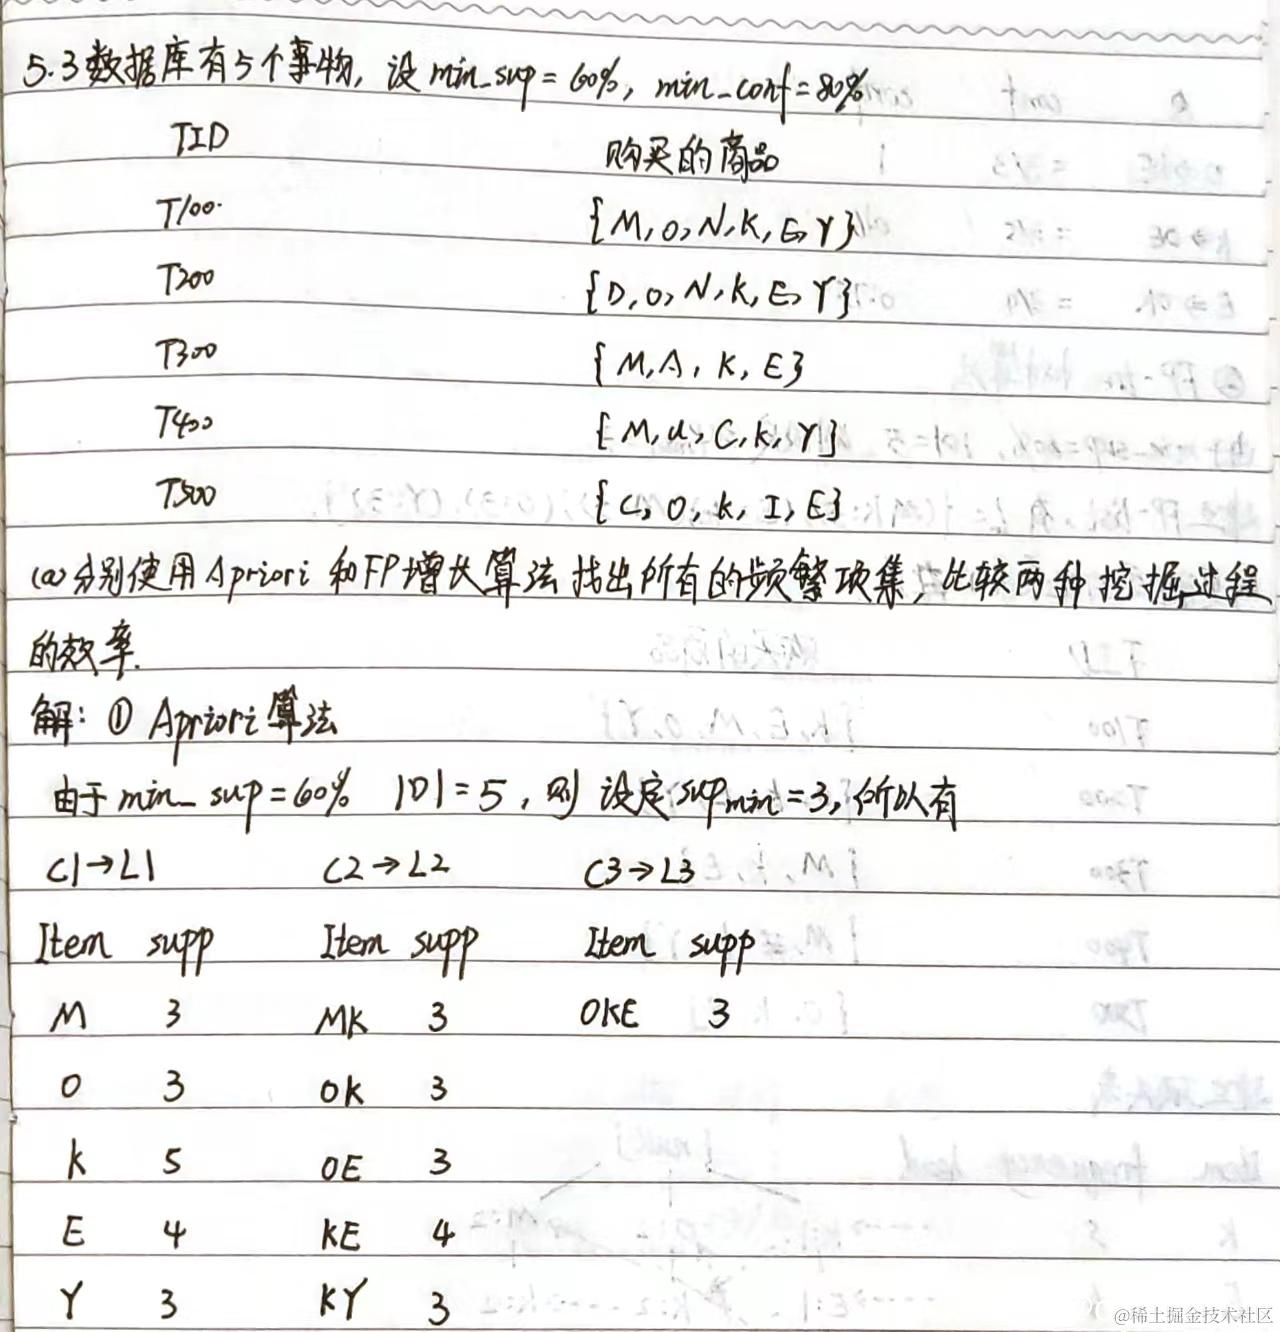 5.3数据库有5个事物, 设 min_sup = 60%, min_conf = 80%
TID 购买的商品
T100 {M, O, N, K, E, Y}
T200 {D, O, N, K, E, Y}
T300 {M, A, K, E}
T400 {M, U, C, K, Y}
T500 {C, O, K, I, E}
(a)分别使用Apriori和FP增长算法找出所有的频繁项集, 比较两种挖掘过程
的效率.
解: ① Apriori算法
由于min_sup = 60% |D| = 5, 则 设定supmin = 3, 所以有
C1→L1 C2→L2 C3→L3
Item supp Item supp Item supp
M 3 MK 3 OKE 3
O 3 OK 3
K 5 OE 3
E 4 KE 4
Y 3 KY 3
@稀土掘金技术社区